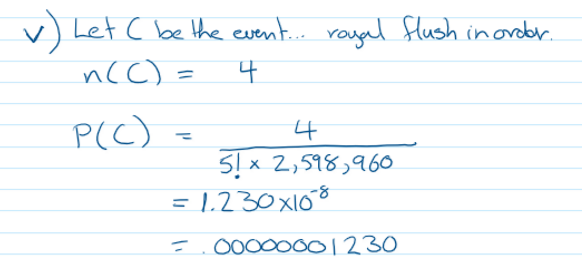 v) Let C be the event... royal flush in order.
n(C) = 4
P(C) = 4
5! × 2,598,960
= 1.230×10⁻⁸
= .00000001230